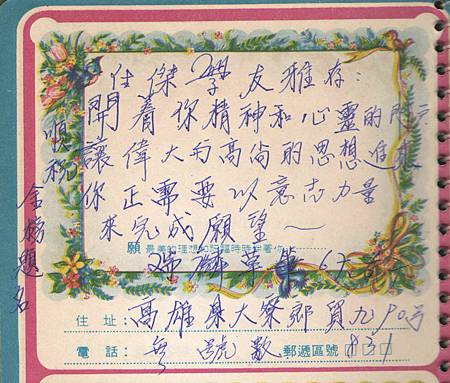 佳傑學友雅存：
開着你精神和心靈的門
讓偉大而高尚的思想進來
你正需要以意志力量
來完成願望～
願 最美的理想和祝福時時伴著你
順祝
金榜題名
住址：高雄縣大寮鄉貿九90号
電話：無號數 郵遞區號 831